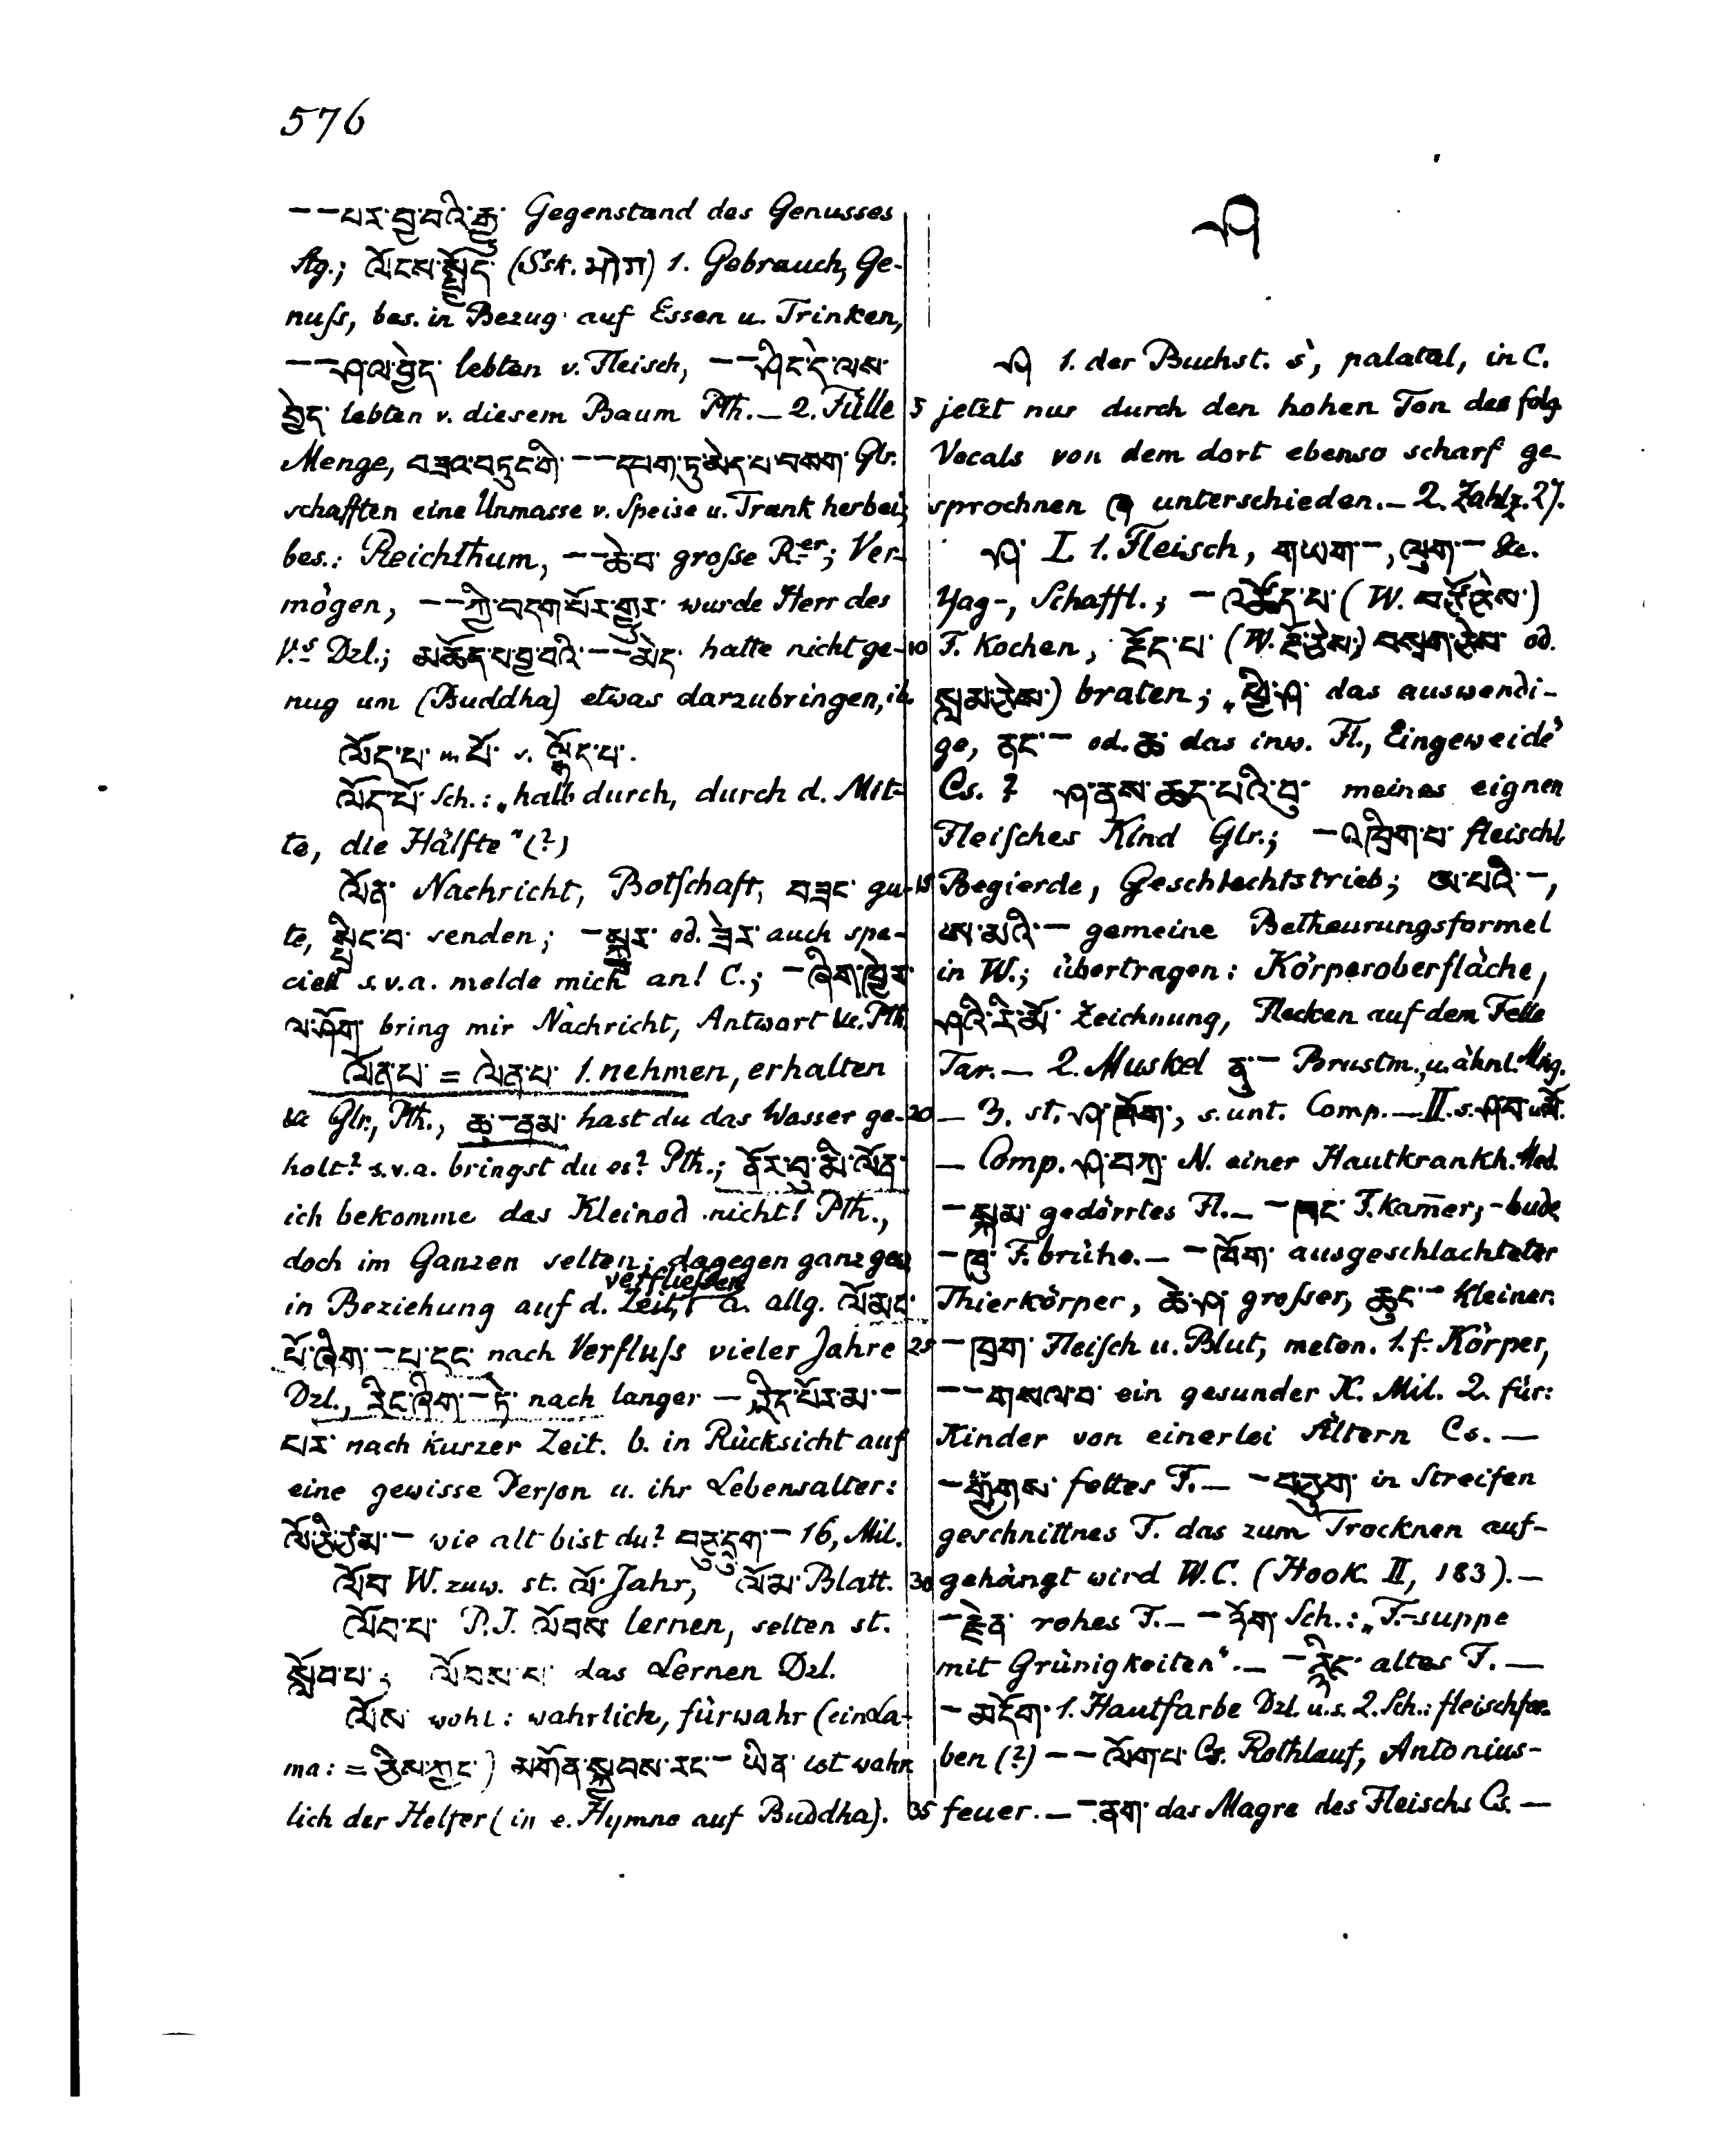 576
——པར་བྱ་བའི་རྒྱུ་ Gegenstand des Genusses
Stg.; ལོངས་སྤྱོད་ (Ssk. भोग) 1. Gebrauch, Ge-
nuſs, bes. in Bezug auf Essen u. Trinken,
——ཤ་ལ་བྱེད་ lebten v. Fleisch, ——ཤིང་དེ་ལས་
བྱེད་ lebten v. diesem Baum Pth. — 2. Fülle
Menge, བཟའ་བཏུང་གི་ ——དཔག་ཏུ་མེད་པ་བསག་ Glr.
schafften eine Unmasse v. Speise u. Trank herbei;
bes.: Reichthum, ——ཆེ་བ་ groſse R.er; Ver-
mögen, ——ཀྱི་བདག་པོར་གྱུར་ wurde Herr des
V.s Dzl.; མཆོད་པ་བྱ་བའི་——མེད་ hatte nicht ge-
nug um (Buddha) etwas darzubringen, ib.
ལོང་པ་ u. པོ་ v. ལྡོང་པ་.
ལོང་པོ་ Sch.: „halb durch, durch d. Mit-
te, die Hälfte“ (?)
ལོན་ Nachricht, Botſchaft, བཟང་ gu-
te, སྤྲིང་བ་ senden; —སྐྱར་ od. ཟེར་ auch spe-
ciell s.v.a. melde mich an! C.; —ཞིག་ཁྱེར་
ལ་ཤོག་ bring mir Nachricht, Antwort &c. Pth.
ལོན་པ་ = ལེན་པ་ 1. nehmen, erhalten
&c Glr., Pth., ཆུ་—ནམ་ hast du das Wasser ge-
holt? s.v.a. bringst du es? Pth.; ནོར་བུ་མི་ལོན་
ich bekomme das Kleinod nicht! Pth.,
doch im Ganzen selten; dagegen ganz gew.
in Beziehung auf d. Zeit, verfließen a. allg. ལོ་མང་
པོ་ཞིག་—པ་དང་ nach Verfluſs vieler Jahre
Dzl., རིང་ཞིག་—ཏེ་ nach langer —, རིང་པོར་མ་—
པར་ nach kurzer Zeit. b. in Rücksicht auf
eine gewisse Perſon u. ihr Lebensalter:
ལོ་ཇི་ཙམ་— wie alt bist du? བཅུ་དྲུག་— 16, Mil.
ལོབ་ W. zuw. st. ལོ་ Jahr, ལོ་མ་ Blatt.
ལོབ་པ་ P.I. ལོབས་ lernen, selten st.
སློབ་པ་; ལོབས་པ་ das Lernen Dzl.
ལོས་ wohl: wahrlich, fürwahr (ein La-
ma: = ངེས་ཀྱང་) མགོན་སྐྱབས་རང་— ཡིན་ ist wahr
lich der Helfer (in e. Hymne auf Buddha).
ཤ
ཤ 1. der Buchst. ś, palatal, in C.
5 jetzt nur durch den hohen Ton des folg
Vocals von dem dort ebenso scharf ge-
sprochnen ཞ unterschieden. — 2. Zahlz. 27.
ཤ་ I. 1. Fleisch, གཡག་—, ལུག་— &c.
Yag-, Schaffl.; —འཚོད་པ་ (W. བཙོ་ཅེས་)
10 F. kochen, རྔོད་པ་ (W. རྔོ་ཅེས་) བསྲག་ཅེས་ od.
སླམ་ཅེས་) braten; „ཕྱི་ཤ་ das auswendi-
ge, ནང་— od. ཆ་ das inw. Fl., Eingeweide“
Cs.? ཤ་ནས་ཆད་པའི་བུ་ meines eignen
Fleiſches Kind Glr.; —འཁྲིག་པ་ fleischl.
15 Begierde, Geschlechtstrieb; ཨ་པའི་—,
ཨ་མའི་— gemeine Betheurungsformel
in W.; übertragen: Körperoberfläche,
ཤའི་རི་མོ་ Zeichnung, Flecken auf dem Felle
Tar. — 2. Muskel ནུ་— Brustm., u. ähnl. Mng.
20 — 3. st. ཤ་ཐོག་, s. unt. Comp. — II. s. ཤབ་ u. ཤོ་.
— Comp. ཤ་བཀྲ་ N. einer Hautkrankh. Med.
—སྐམ་ gedörrtes Fl. — —ཁང་ F. kam̄er, -bude
—ཁུ་ F. brühe. — —ཁོག་ ausgeschlachteter
Thierkörper, ཆེ་ཤ་ groſser, ཆུང་— kleiner.
25 —ཁྲག་ Fleiſch u. Blut, meton. 1. f. Körper,
——གསལ་བ་ ein gesunder K. Mil. 2. für:
Kinder von einerlei Ältern Cs. —
—རྒྱགས་ fettes F. — —བཅུག་ in Streifen
geschnittnes F. das zum Trocknen auf-
30 gehängt wird W.C. (Hook. II, 183). —
—རྗེན་ rohes F. — —ཏོག་ Sch.: „F.-suppe
mit Grünigkeiten“. — —རྙིང་ altes F. —
—མདོག་ 1. Hautfarbe Dzl. u.s. 2. Sch.: fleischfar-
ben (?) ——ལོག་པ་ Cs. Rothlauf, Antonius-
35 feuer. — —ནག་ das Magre des Fleischs Cs. —